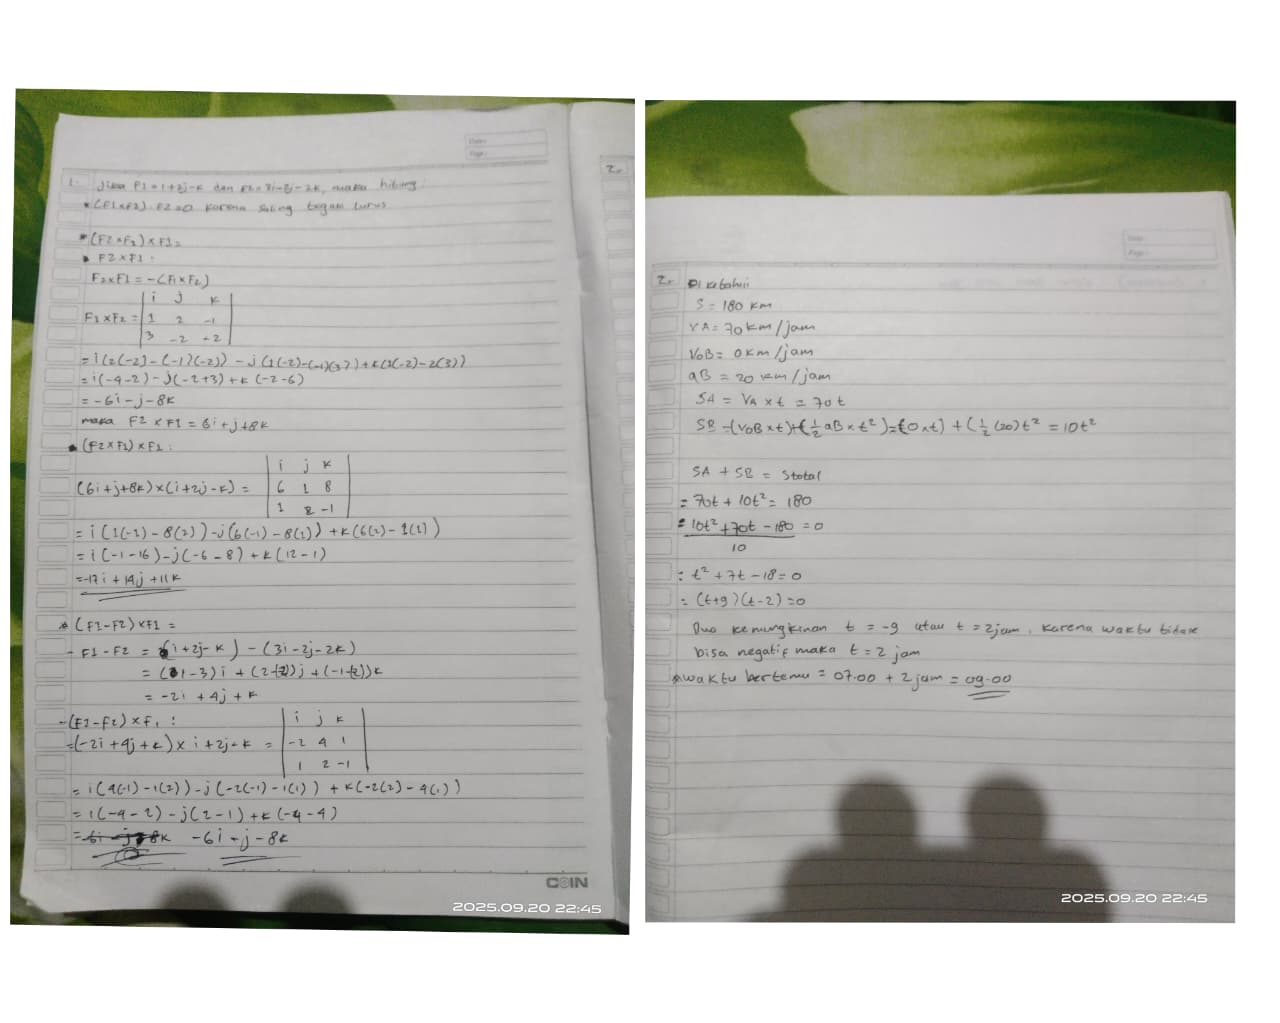 1. Jika F1 = i+2j-k dan F2 = 3i-2j-2k, maka hitung
• (F1xF2). F2=0 karena saling tegak lurus
• (F2xF1) x F1 =
• F2xF1 :
F2xF1 = -(F1xF2)
i j k
F1xF2 = 1 2 -1
3 -2 +2
= i(2(-2) - (-1)(-2)) - j(1(-2)-(-1)(3)) + k(1(-2)-2(3))
= i(-4-2) - j(-2+3) + k(-2-6)
= -6i - j - 8k
maka F2 x F1 = 6i + j + 8k
• (F2xF1) x F1 :
i j k
(6i+j+8k)x(i+2j-k) = 6 1 8
1 2 -1
= i(1(-1) - 8(2)) - j(6(-1) - 8(1)) + k(6(2) - 1(1))
= i(-1-16) - j(-6-8) + k(12-1)
= -17i + 14j + 11k
* (F1-F2) x F1 =
- F1-F2 = (i+2j-k) - (3i-2j-2k)
= (1-3)i + (2+2)j + (-1+2)k
= -2i + 4j + k
- (F1-F2) x F1 :
i j k
= (-2i+4j+k) x i+2j-k = -2 4 1
1 2 -1
= i(4(-1) - 1(2)) - j(-2(-1) - 1(1)) + k(-2(2) - 4(1))
= i(-4-2) - j(2-1) + k(-4-4)
= -6i - j - 8k -6i - j - 8k
COIN
2025.09.20 22:45
2.
2. Diketahui
S = 180 km
VA = 70 km/jam
VoB = 0 km/jam
aB = 20 km/jam
SA = VA x t = 70t
SB = (VoB x t) + (½ aB x t²) = (0xt) + (½ (20)t² = 10t²
SA + SB = Stotal
= 70t + 10t² = 180
= 10t² + 70t - 180 = 0
10
= t² + 7t - 18 = 0
= (t+9)(t-2) = 0
Dua kemungkinan t = -9 atau t = 2jam, karena waktu tidak
bisa negatif maka t = 2 jam
* waktu bertemu = 07.00 + 2 jam = 09.00
2025.09.20 22:45